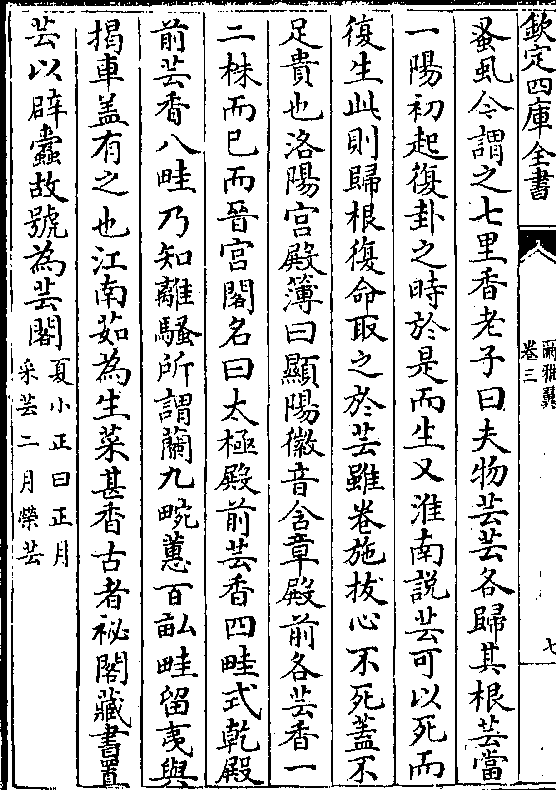 欽定四庫全書
爾雅翼
卷三
七
蚤虱今謂之七里香老子曰夫物芸芸各歸其根芸當
一陽初起復卦之時於是而生又淮南說芸可以死而
復生此則歸根復命取之於芸雖卷施拔心不死蓋不
足貴也洛陽宮殿簿曰顯陽徽音含章殿前各芸香一
二株而已而晉宮閣名曰太極殿前芸香四畦式乾殿
前芸香八畦乃知離騷所謂蘭九畹蕙百畝畦留夷與
揭車盖有之也江南茹為生菜甚香古者祕閣藏書置
芸以辟蠧故號為芸閣
夏小正曰正月
采芸二月榮芸